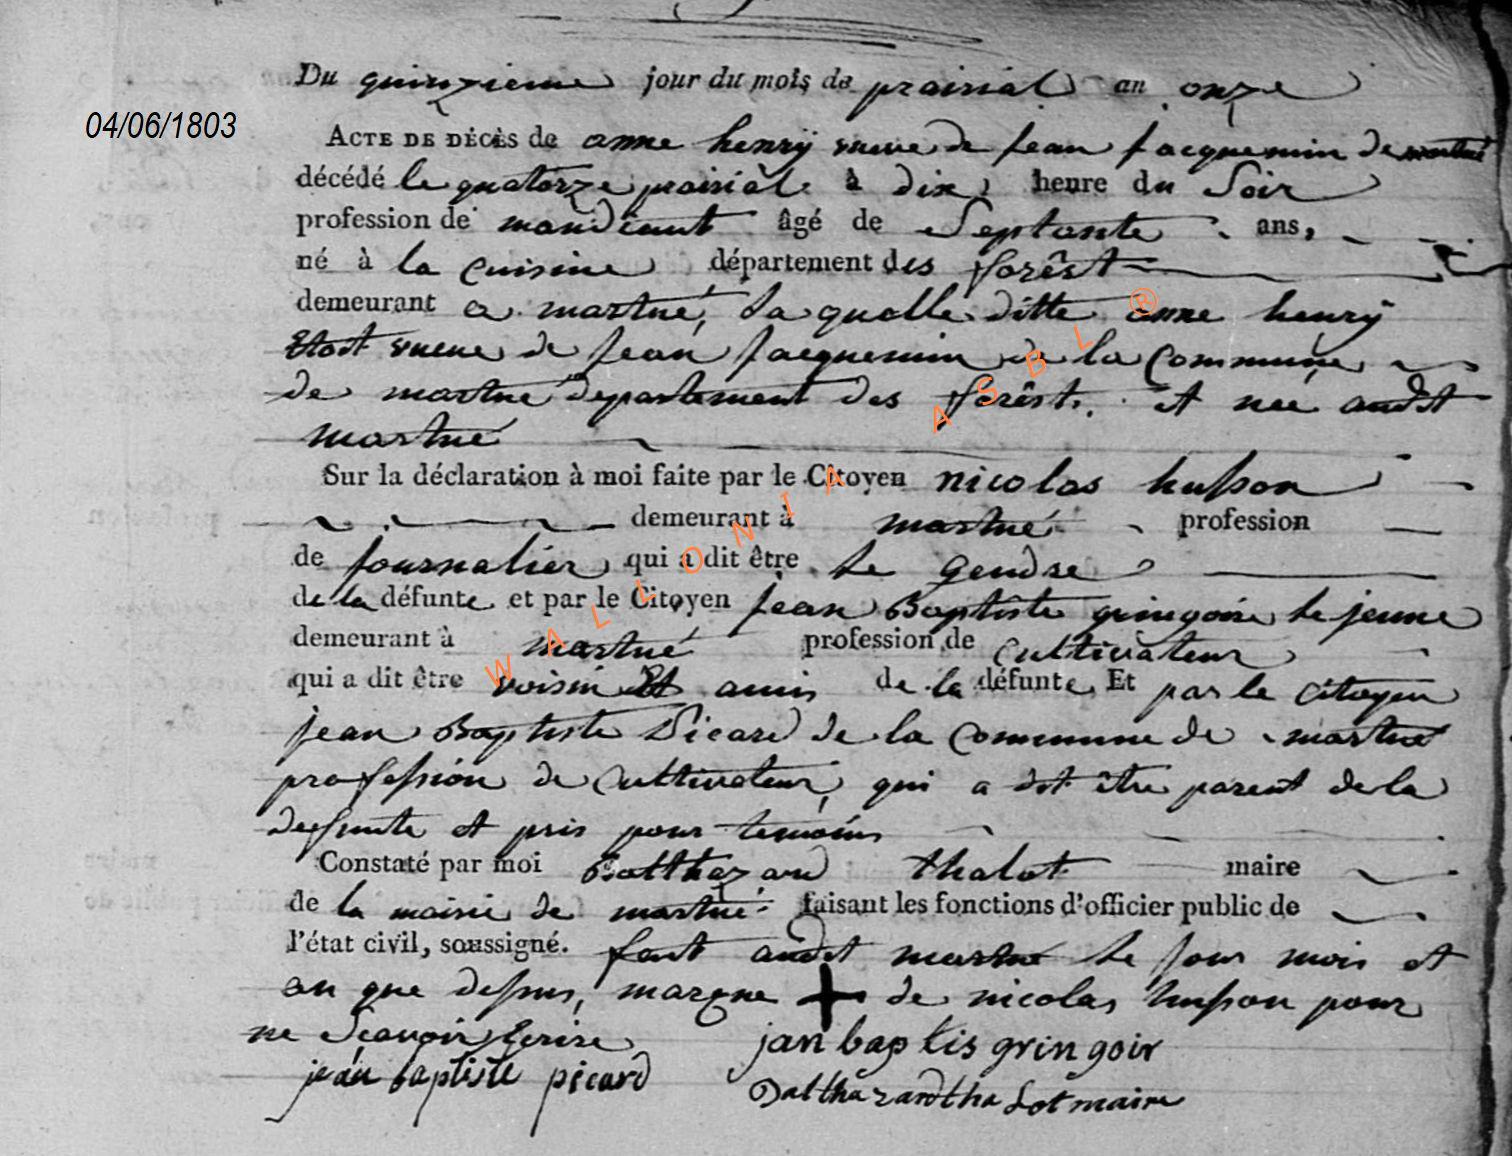 Du quinzieme jour du mois de prairial an onze
04/06/1803
ACTE DE DÉCÈS de anne henrÿ vueve de jean jacquemin de martué
décédé le quatorze prairial à dix heure du Soir
profession de mandiant âgé de Septante ans,
né à la cuisine département des forêst
demeurant a martué, la quelle ditte anne henrÿ
Etoit vueve de jean jacquemin de la Commune
de martué departement des forêst. et nee audit
martué
Sur la déclaration à moi faite par le Citoyen nicolas husson
demeurant à martué profession
de journalier qui a dit être le gendre
de la défunte et par le Citoyen jean Baptiste gringoire le jeune
demeurant à martué profession de cultivateur
qui a dit être voisin Et amis de la défunte Et par le citoyen
jean Baptiste Picard de la Commune de martué
profession de Cultivateur, qui a dit être parent de la
defunte et pris pour temoins
Constaté par moi Balthazard thalot maire
de la mairie de martué faisant les fonctions d'officier public de
l'état civil, soussigné. fait audit martué le jour mois et
an que dessus, marque + de nicolas husson pour
ne Scavoir Ecrire
jan baptis gringoir
jean baptiste picard
Balthazard thalot maire
WALLONIA ASBL ®